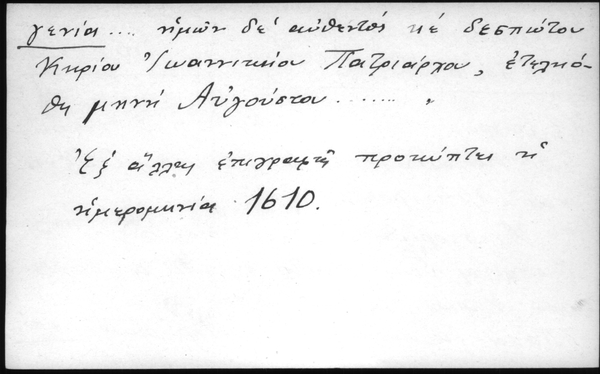 γενία .... ἡμῶν δέ αὐθεντός κέ δεσπώτου
Κυρίου Ἰωαννικίου Πατριάρχου, ἐτελιό-
θη μηνή Αὐγούστου ........ "
Ἐξ ἄλλης ἐπιγραφῆς προκύπτει ἡ
ἡμερομηνία 1610.